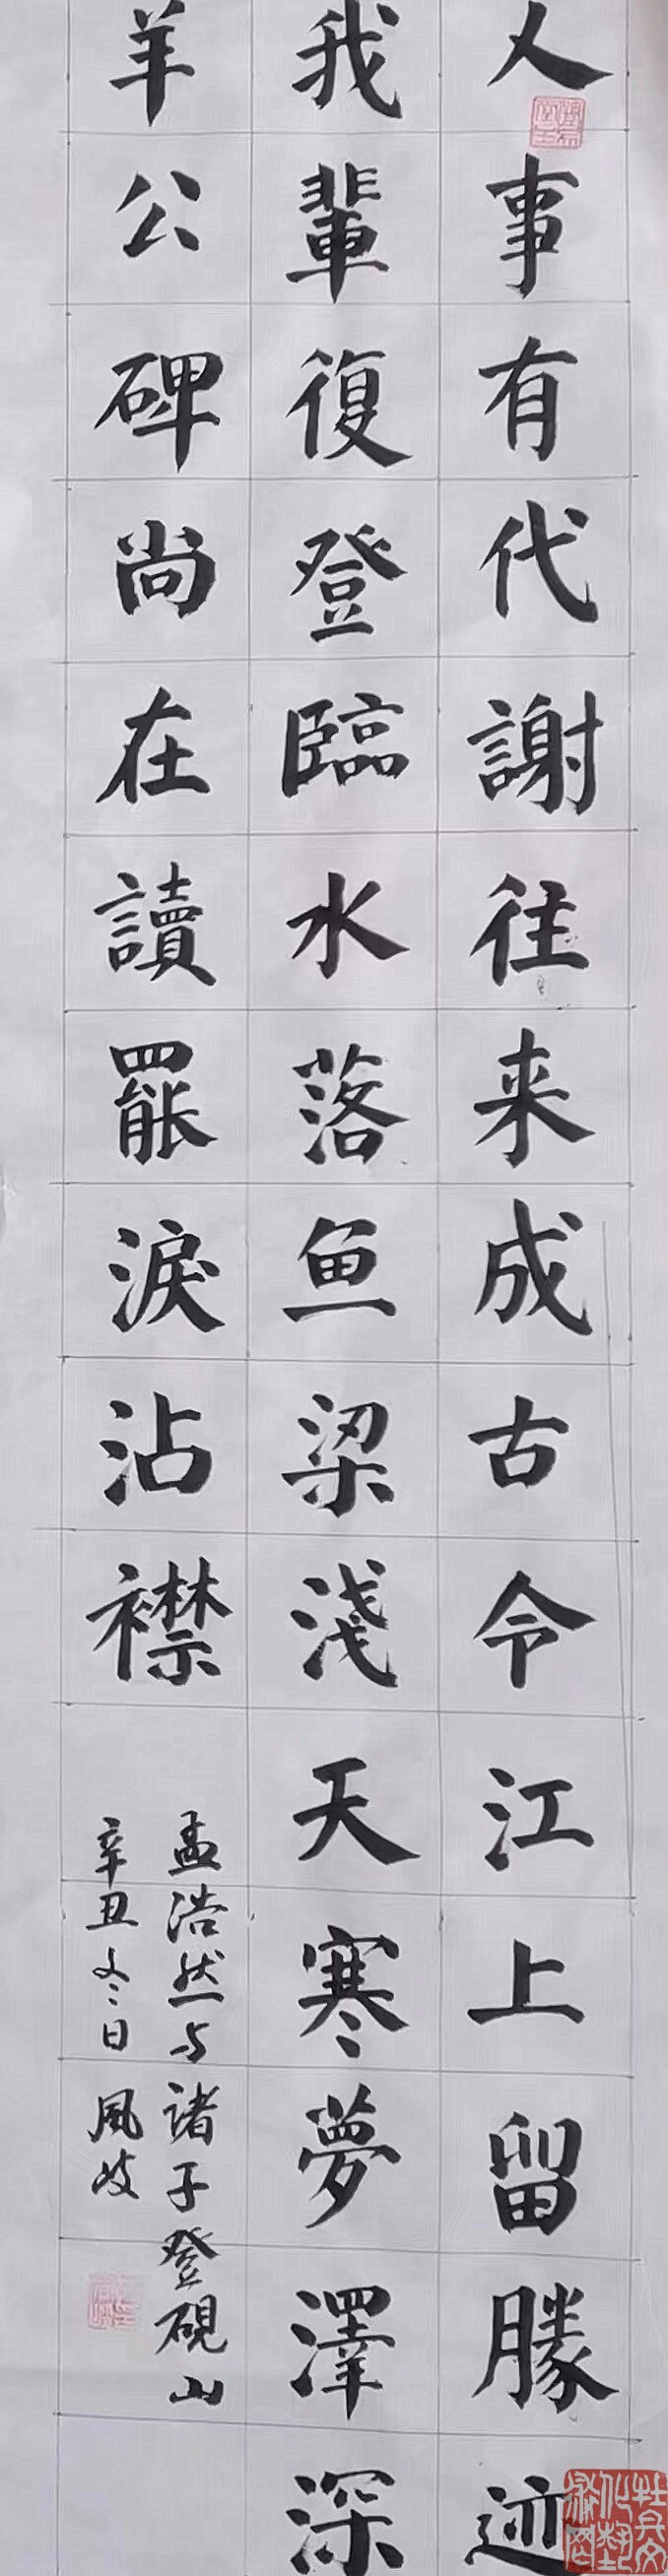 人事有代謝往来成古今江上留勝迹
我輩復登臨水落鱼梁淺天寒夢澤深
羊公碑尚在讀罷淚沾襟
孟浩然与诸子登硯山
辛丑冬日風岐